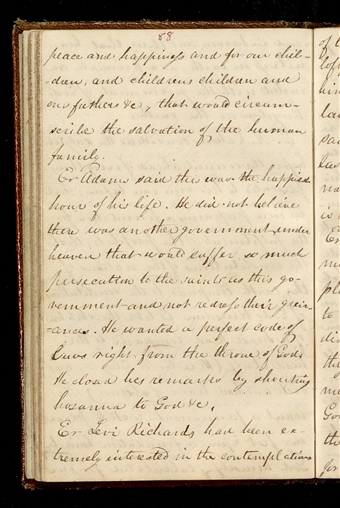 88
peace and happiness and for our chil-
dren, and childrens children and
our fathers &c, that would circum-
scribe the salvation of the human
family.
Er Adams said this was the happiest
hour of his life. He did not believe
there was another government under
heaven that would suffer so much
persecution to the saints as this go-
vernment and not redress their griev-
ances. He wanted a perfect code of
Laws right from the throne of God.
He closed his remarks by shouting
hosanna to God &c.
Er Levi Richards had been ex-
tremely interested in the contemplations